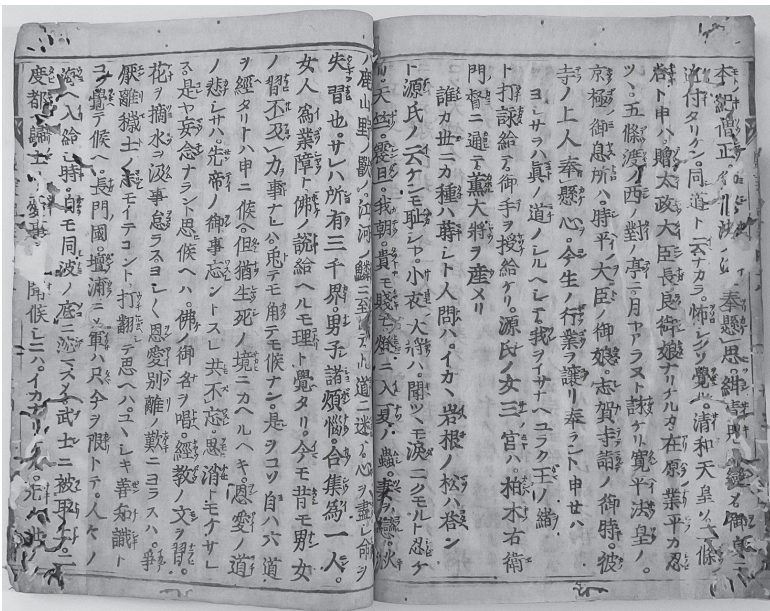 本紺僧正 奉懸思。紺青鬼ト變 御身ニ
近付タリケン。同道ト云ナカラ。怖シクソ覺ル。清和天皇ノ二條
后ト申ハ。贈太政大臣長良御娘ナリケルカ在原業平カ忍
ツヽ。五條渡ノ西ノ對ノ亭ニ。月ヤアラヌト詠ケリ寛平法皇ノ。
京極ノ御息所ハ。時平ノ大臣ノ御娘。志賀寺詣ノ御時。彼
寺ノ上人奉懸心。今生ノ行業ヲ讓リ奉ラント申セハ
ヨシサラハ真ノ道ノシルヘシテ我ヲイサナヘユラク玉ノ緒
ト打詠給テ。御手ヲ授給ケリ。源氏ノ女三宮ハ。柏木右衛
門督ニ通テ薫大将ヲ産メリ
誰カ世ニカ種ハ蒔シト人問ハ。イカヽ岩根ノ松ハ答ン
ト源氏ノ云ケンモ耻シヤ。小夜大将ハ。聞ツヽモ涙ニクモルト忍ケ
ル。天竺。震旦。我朝。貴モ賤モ。燃ニ入夏ノ蟲。妻ヲ戀秋
ノ鹿山野ノ獸。江河ノ鱗ニ至マテ此道ニ迷テ心ヲ盡シ命ヲ
失習也。サレハ所有三千界。男子諸煩惱。合集為一人。
女人為業障ト佛ノ説給ヘルモ理ト覺タリ。今モ昔モ男女
ノ習不及力事ナレハ。兎テモ角テモ候ナン。是ヲコソ自ハ六道
ヲ經タリトハ申ニ候。但猶生死ノ境ニカヘルヘキ。恩愛ノ道
ノ悲シサハ。先帝ノ御事忘ントスレ共不忘。思消トモケサレ
ス。是ヤ妄念ナラント思候ヘハ。佛ノ御名ヲ唱。經教ノ文ヲ習。
花ヲ摘水ヲ汲事怠ラスヨシ〱恩愛別離ノ歎ニヨラスハ。爭
厭離穢土ノ志モイテコント。打翻テ思ヘハ。ユヽシキ善知識ト
コソ覺テ候ヘ。長門國。壇浦ニ軍ハ只今ヲ限トテ。人々ノ
海ヘ入給シ時。自モ同波ノ底ニ沈シヲ武士ニ被取テ。二
度都ニ歸上 聞候シニハ。イカナリ 先世